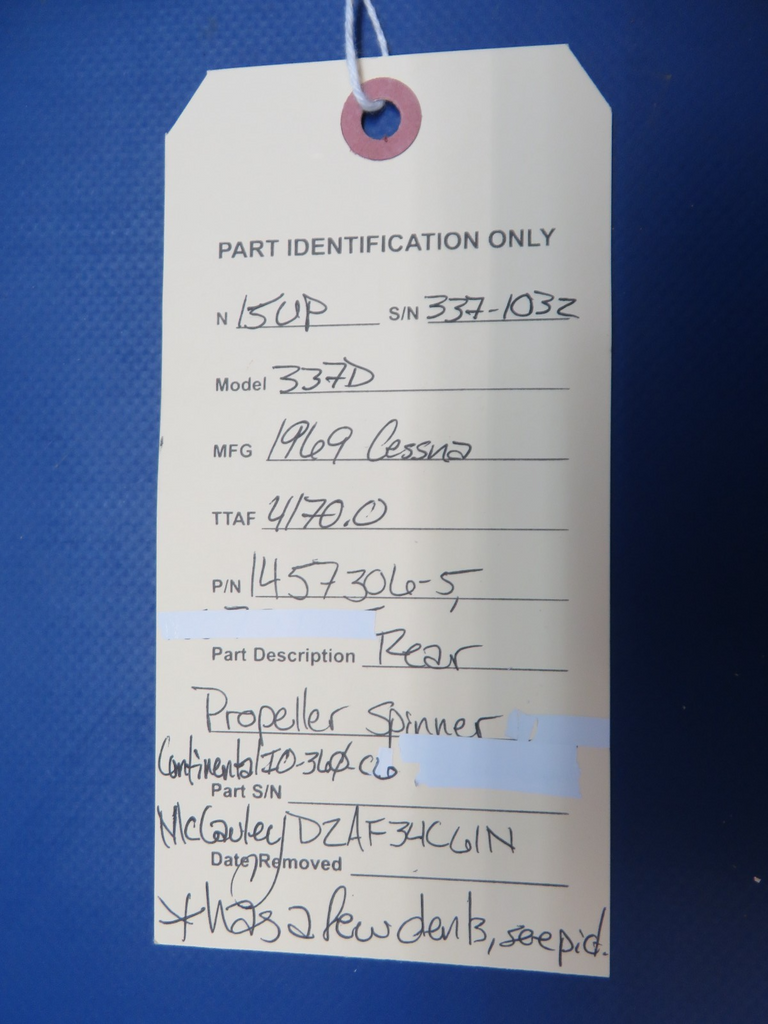 PART IDENTIFICATION ONLY
N 15UP S/N 337-1032
Model 337D
MFG 1969 Cessna
TTAF 4170.0
P/N 1457306-5,
Part Description Rear
Propeller Spinner
Continental IO-360-C6
Part S/N
McCauley D2AF34C61N
Date Removed
*has a few dents, see pic.